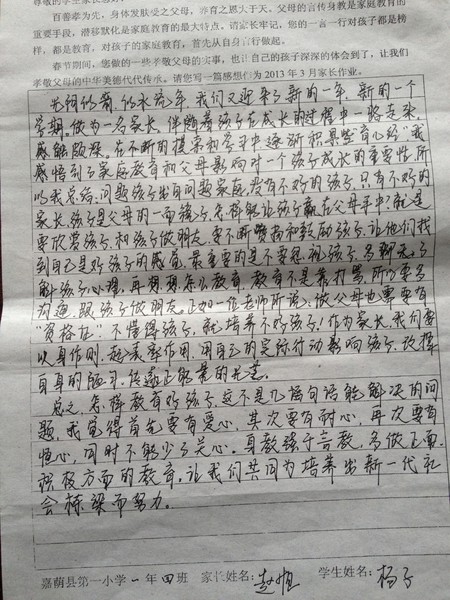 尊敬的学生家长您好:
百善孝为先,身体发肤受之父母,养育之恩大于天。父母的言传身教是家庭教育的
重要手段,潜移默化是家庭教育的最大特点。请家长牢记,您的一言一行对孩子都是榜
样,都是教育,对孩子的家庭教育,首先从自身言行做起。
春节期间,您做的一些孝敬父母的实事,也让自己的孩子深深的体会到了,让我们
孝敬父母的中华美德代代传承。请您写一篇感想作为 2013 年 3 月家长作业。
光阴似箭,似水流年,我们又迎来了新的一年,新的一个
学期。做为一名家长,伴随着孩子在成长的过程中一路走来,
感触颇深。在不断的摸索和学习中逐渐积累些育心经"我
感悟到了家庭教育和父母影响对一个孩子成长的重要性,所
以我总结:问题孩子出自问题家庭,没有不好的孩子,只有不好的
家长,孩子是父母的一面镜子,怎样能让孩子赢在父母手中?就是
要欣赏孩子,和孩子做朋友,要不断赞扬和鼓励孩子,让他们找
到自己是好孩子的感觉,最重要的是不要忽视孩子,多聊天,了
解孩子心理,再想想怎么教育,教育不是靠打骂,所以要多
沟通,跟孩子做朋友。正如一位老师所说:做父母也需要有
"资格证",不懂得孩子,就培养不好孩子!作为家长,我们要
以身作则,起表率作用,用自己的实际行动影响孩子,改掉
自身的陋习,传递正能量的光芒。
总之,怎样教育好孩子,这不是几语句话能解决的问
题,我觉得首先要有爱心,其次要有耐心,再次要有
恒心,同时不能少了关心。身教强于言教,多做正面、
积极方面的教育,让我们共同为培养出新一代社
会栋梁而努力。
嘉荫县第一小学 一 年 四 班 家长姓名: 赵 学生姓名: 杨子